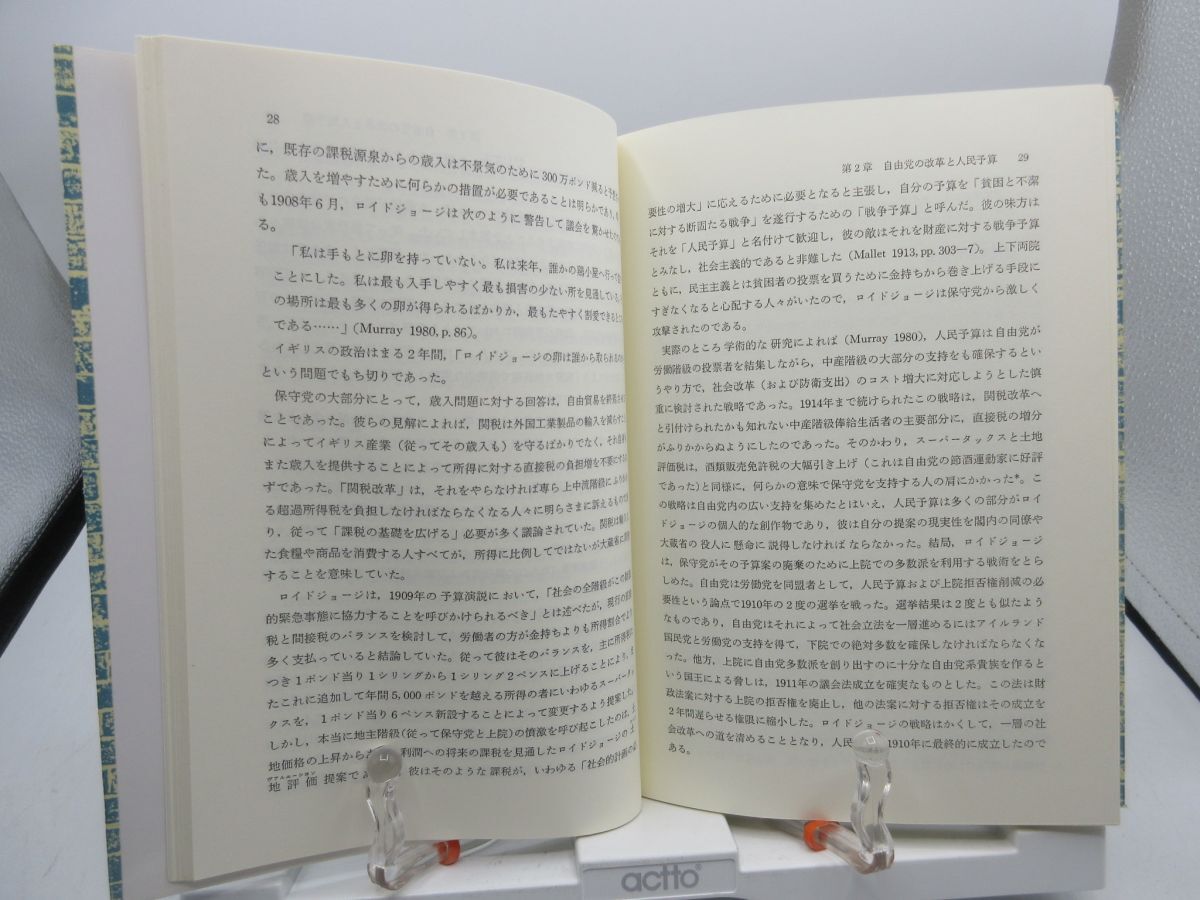 28
に，既存の課税源泉からの歳入は不景気のために300万ポンド減ると予
た。歳入を増やすために何らかの措置が必要であることは明らかであり，
も1908年6月，ロイドジョージは 次のように 警告して 議会を驚かせた
る。
「私は手もとに卵を持っていない。私は来年，誰かの鶏小屋へ行って
ことにした。私は最も入手しやすく最も損害の少ない所を見通している
の場所は最も多くの卵が得られるばかりか，最もたやすく割愛できる
である……」(Murray 1980, p. 86)。
イギリスの政治はまる2年間，「ロイドジョージの卵は誰から取られるのか
という問題でもち切りであった。
保守党の大部分にとって，歳入問題に対する回答は，自由貿易を
ことであった。彼らの見解によれば，関税は外国工業製品の輸入を減らす
によってイギリス産業（従ってその歳入も）を守るばかりでなく，それ
また歳入を提供することによって所得に対する直接税の負担増を不要にする
ずであった。「関税改革」は，それをやらなければ専ら上中流階級に ふりか
る超過所得税を負担しなければならなくなる人々に明らさまに訴えるもので
り，従って「課税の基礎を広げる」必要が多く議論されていた。関税は輸入
た食糧や商品を消費する人すべてが，所得に比例してではないが大蔵省に
することを意味していた。
ロイドジョージは，1909年の 予算演説に おいて，「社会の全階級がこの
的緊急事態に協力することを呼びかけられるべき」とは述べたが，現行の直接
税と間接税のバランスを検討して，労働者の方が金持ちよりも所得割合で
多く支払っていると結論していた。従って彼はそのバランスを，主に所得税に
つき1ポンド当り1シリングから1シリング2ペンスに上げることにより，
たこれに追加して年間5,000ポンドを越える所得の者にいわゆるスーパータッ
クスを，1ポンド当り6ペンス新設することによって変更するよう提案した。
しかし，本当に地主階級(従って保守党と上院)の憤激を呼び起こしたのは，土
地価格の上昇から 利潤への将来の課税を見通したロイドジョージの土
地評価 提案で 彼はそのような 課税が，いわゆる「社会的計画の必
第2章 自由党の改革と人民予算 29
要性の増大」に応えるために必要となると主張し，自分の予算を「貧困と不潔
に対する断固たる戦争」を遂行するための「戦争予算」と呼んだ。彼の味方は
それを「人民予算」と名付けて歓迎し，彼の敵はそれを財産に対する戦争予算
とみなし，社会主義的であると非難した (Mallet 1913, pp. 303—7)。上下両院
ともに，民主主義とは貧困者の投票を買うために金持ちから巻き上げる手段に
すぎなくなると心配する人々がいたので，ロイドジョージは保守党から激しく
攻撃されたのである。
実際のところ 学術的な 研究によれば (Murray 1980)，人民予算は自由党が
労働階級の投票者を結集しながら，中産階級の大部分の支持をも確保するとい
うやり方で，社会改革（および防衛支出）のコスト増大に対応しようとした慎
重に検討された戦略であった。1914年まで続けられたこの戦略は，関税改革へ
と引付けられたかも知れない中産階級俸給生活者の主要部分に，直接税の増分
がふりかからぬようにしたのであった。そのかわり，スーパータックスと土地
評価税は，酒類販売免許税の大幅引き上げ（これは自由党の節酒運動家に好評
であった)と同様に，何らかの意味で保守党を支持する人の肩にかかった*。こ
の戦略は自由党内の広い支持を集めたとはいえ，人民予算は多くの部分がロイ
ドジョージの個人的な創作物であり，彼は自分の提案の現実性を閣内の同僚や
大蔵省の 役人に 懸命に 説得しなければ ならなかった。結局，ロイドジョージ
は，保守党がその予算案の廃棄のために上院での多数派を利用する戦術をとら
しめた。自由党は労働党を同盟者として，人民予算および上院拒否権削減の必
要性という論点で1910年の2度の選挙を戦った。選挙結果は2度とも似たよう
なものであり，自由党はそれによって社会立法を一層進めるにはアイルランド
国民党と労働党の支持を得て，下院での絶対多数を確保しなければならなくな
った。他方，上院に自由党多数派を創り出すのに十分な自由党系貴族を作ると
いう国王による脅しは，1911年の議会法成立を確実なものとした。この法は財
政法案に対する上院の拒否権を廃止し，他の法案に対する拒否権はその成立を
2年間遅らせる権限に縮小した。ロイドジョージの戦略はかくして，一層の社
会改革への道を清めることとなり，人民 1910年に最終的に成立したので
ある。
actto